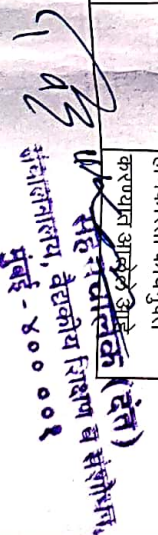 करण्यात आलेले आहे
सहसंचालक (दंत)
संचालनालय, वैद्यकीय शिक्षण व संशोधन,
मुंबई - ४०० ००१